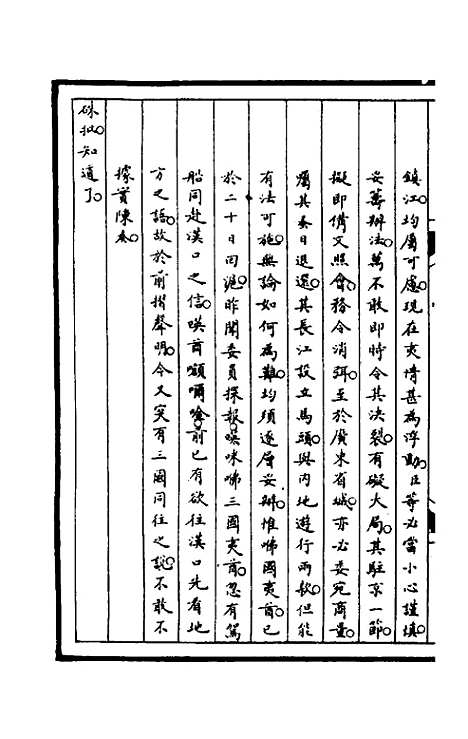 鎮江。均屬可慮。現在夷情甚為浮動。臣等必當小心謹慎。
妥籌辦法。萬不敢即時令其決裂。有礙大局。其駐京一節。
擬即備文照會。務令消弭。至於廣東省城。亦必委宛商量。
囑其委日退還。其長江設立馬頭。與內地遊行兩款。但能
有法可施。無論如何為難。均須逐層妥辦。惟咈國夷酋。已
於二十日回滬。昨聞委員探報。㗸咪咈三國夷酋。忽有駕
船同赴漢口之信。㗸酋嘓嘲唫。前已有欲往漢口先看地
方之語。故於前摺聲明。今又突有三國同往之說。不敢不
據實陳奏。
硃批。知道了。